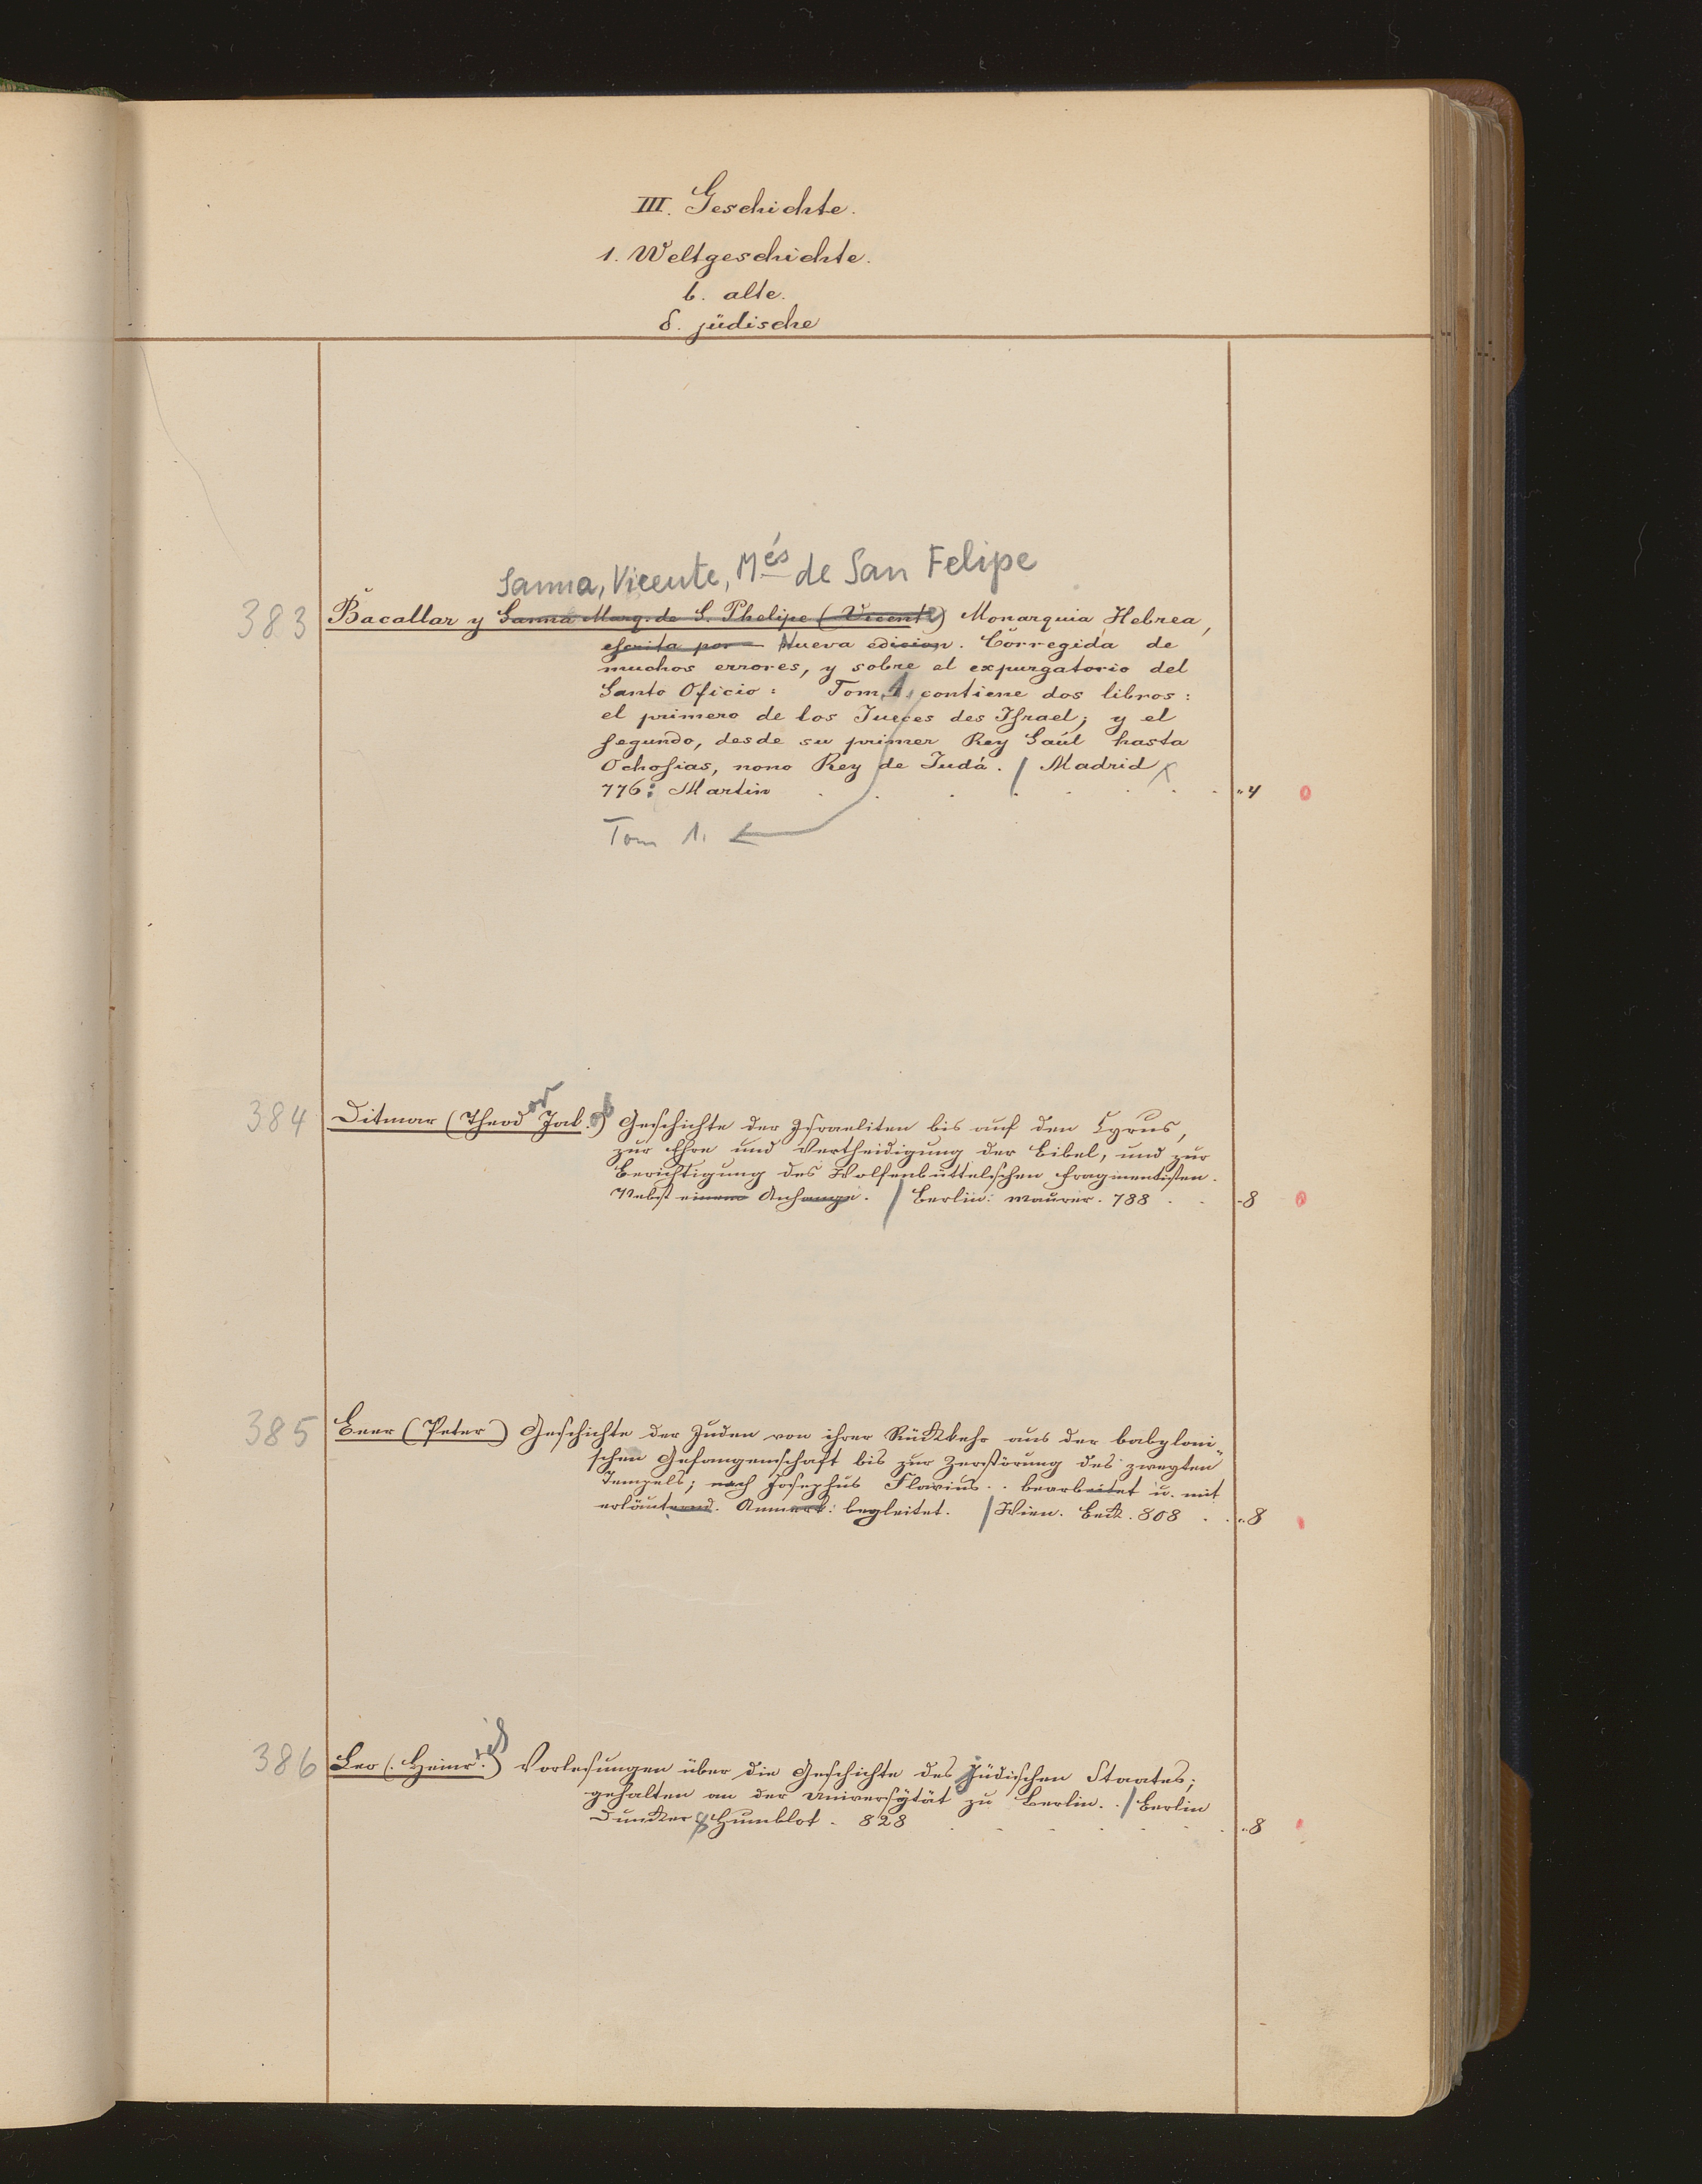 III. Geschichte.
1. Weltgeschichte.
b. alte.
δ. jüdische
Sanna, Vicente, Més de San Felipe
383 Bacallar y Sanna Marq. de S. Phelipe (Vicente) Monarquia Hebrea,
escrita por Nueva edicion. Corregida de
muchos errores, y sobre el expurgatorio del
Santo Oficio: Tom. 1, contiene dos libros:
el primero de los Jueces des Israel; y el
segundo, desde su primer Rey Saúl hasta
Ochosias, nono Rey de Judá. / Madrid
776: Martin . . . . . . . "4 0
Tom 1.
384 Ditmar (Theodor Jakob) Geschichte der Israeliten bis auf den Cyrus,
zur Ehre und Vertheidigung der Bibel, und zur
Berichtigung des Wolfenbüttelschen Fragmentisten.
Nebst einem Anhange. / Berlin: Maurer. 788 . . -8 0
385 Beer (Peter) Geschichte der Juden von ihrer Rückkehr aus der babyloni-
schen Gefangenschaft bis zur Zerstörung des zweyten
Tempels; nach Josephus Flavius . . bearbeitet u. mit
erläuternd. Anmerk: begleitet. / Wien. Beck. 808 . . "8
386 Leo (Heinrich) Vorlesungen über die Geschichte des Jüdischen Staates;
gehalten an der Universytät zu Berlin. . / Berlin
Duncker & Humblot. 828 . . . . . . "8